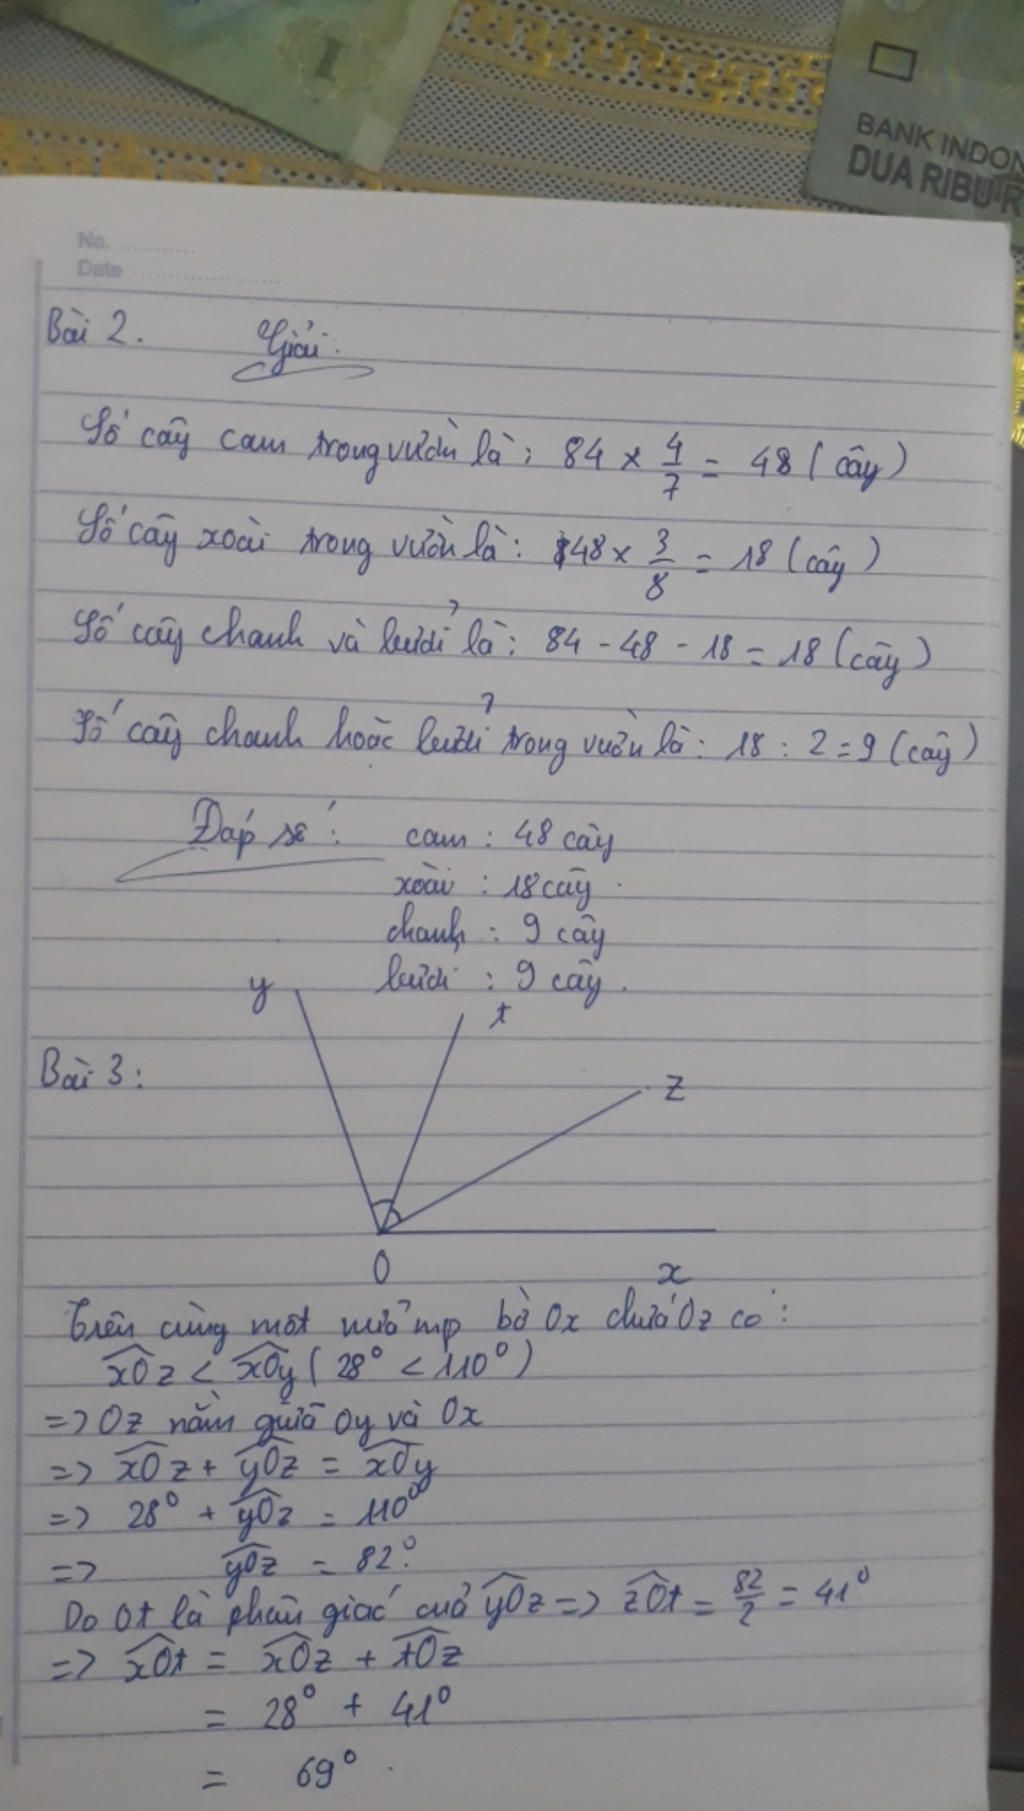 1
BANK INDON
DUA RIBU R
No. ............
Date ......................
Bài 2. Giải:
Số cây cam trong vườn là: 84 × 4/7 = 48 (cây)
Số cây xoài trong vườn là: 48 × 3/8 = 18 (cây)
Số cây chanh và bưởi là: 84 - 48 - 18 = 18 (cây)
Số cây chanh hoặc bưởi trong vườn là: 18 : 2 = 9 (cây)
Đáp số: cam : 48 cây
xoài : 18 cây.
chanh : 9 cây
bưởi : 9 cây.
y
t
Bài 3:
z
O x
Trên cùng một nửa mp bờ Ox chứa Oz có:
xOz < xOy (28° < 110°)
=> Oz nằm giữa Oy và Ox
=> xOz + yOz = xOy
=> 28° + yOz = 110°
=> yOz = 82°.
Do Ot là phân giác của yOz => zOt = 82/2 = 41°
=> xOt = xOz + tOz
= 28° + 41°
= 69°.